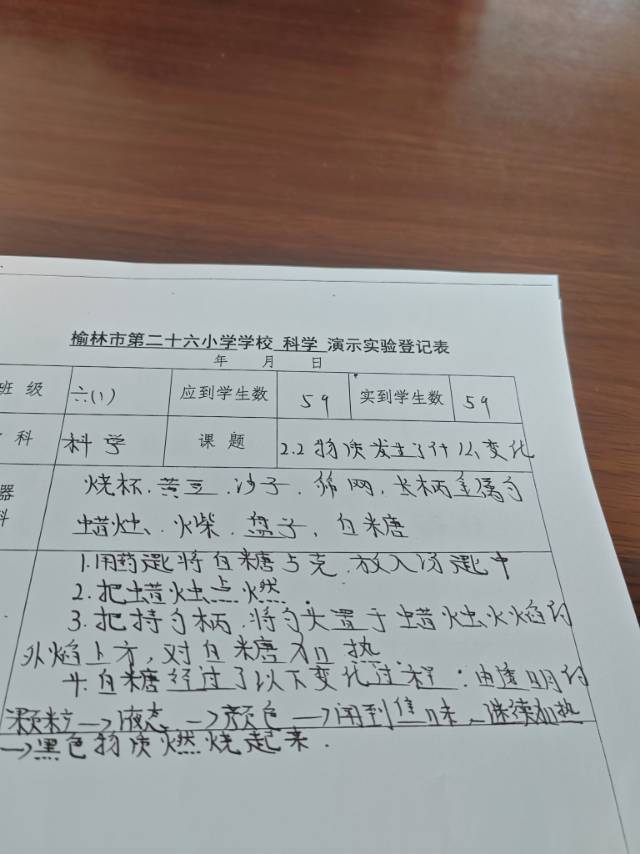 榆林市第二十六小学学校 科学 演示实验登记表
年 月 日
班 级 六(1) 应到学生数 59 实到学生数 59
科 科学 课 题 2.2物质发生了什么变化
器 烧杯、黄豆、沙子、筛网、长柄金属勺
蜡灶、火柴、盘子、白糖
1.用药匙将白糖5克.放入汤匙中
2.把蜡灶点燃.
3.把持勺柄.将勺头置于蜡灶火焰的
外焰上方,对白糖加热.
4.白糖经过了以下变化过程:由透明的
颗粒→液态→颜色→闻到焦味、继续加热
→黑色物质燃烧起来.